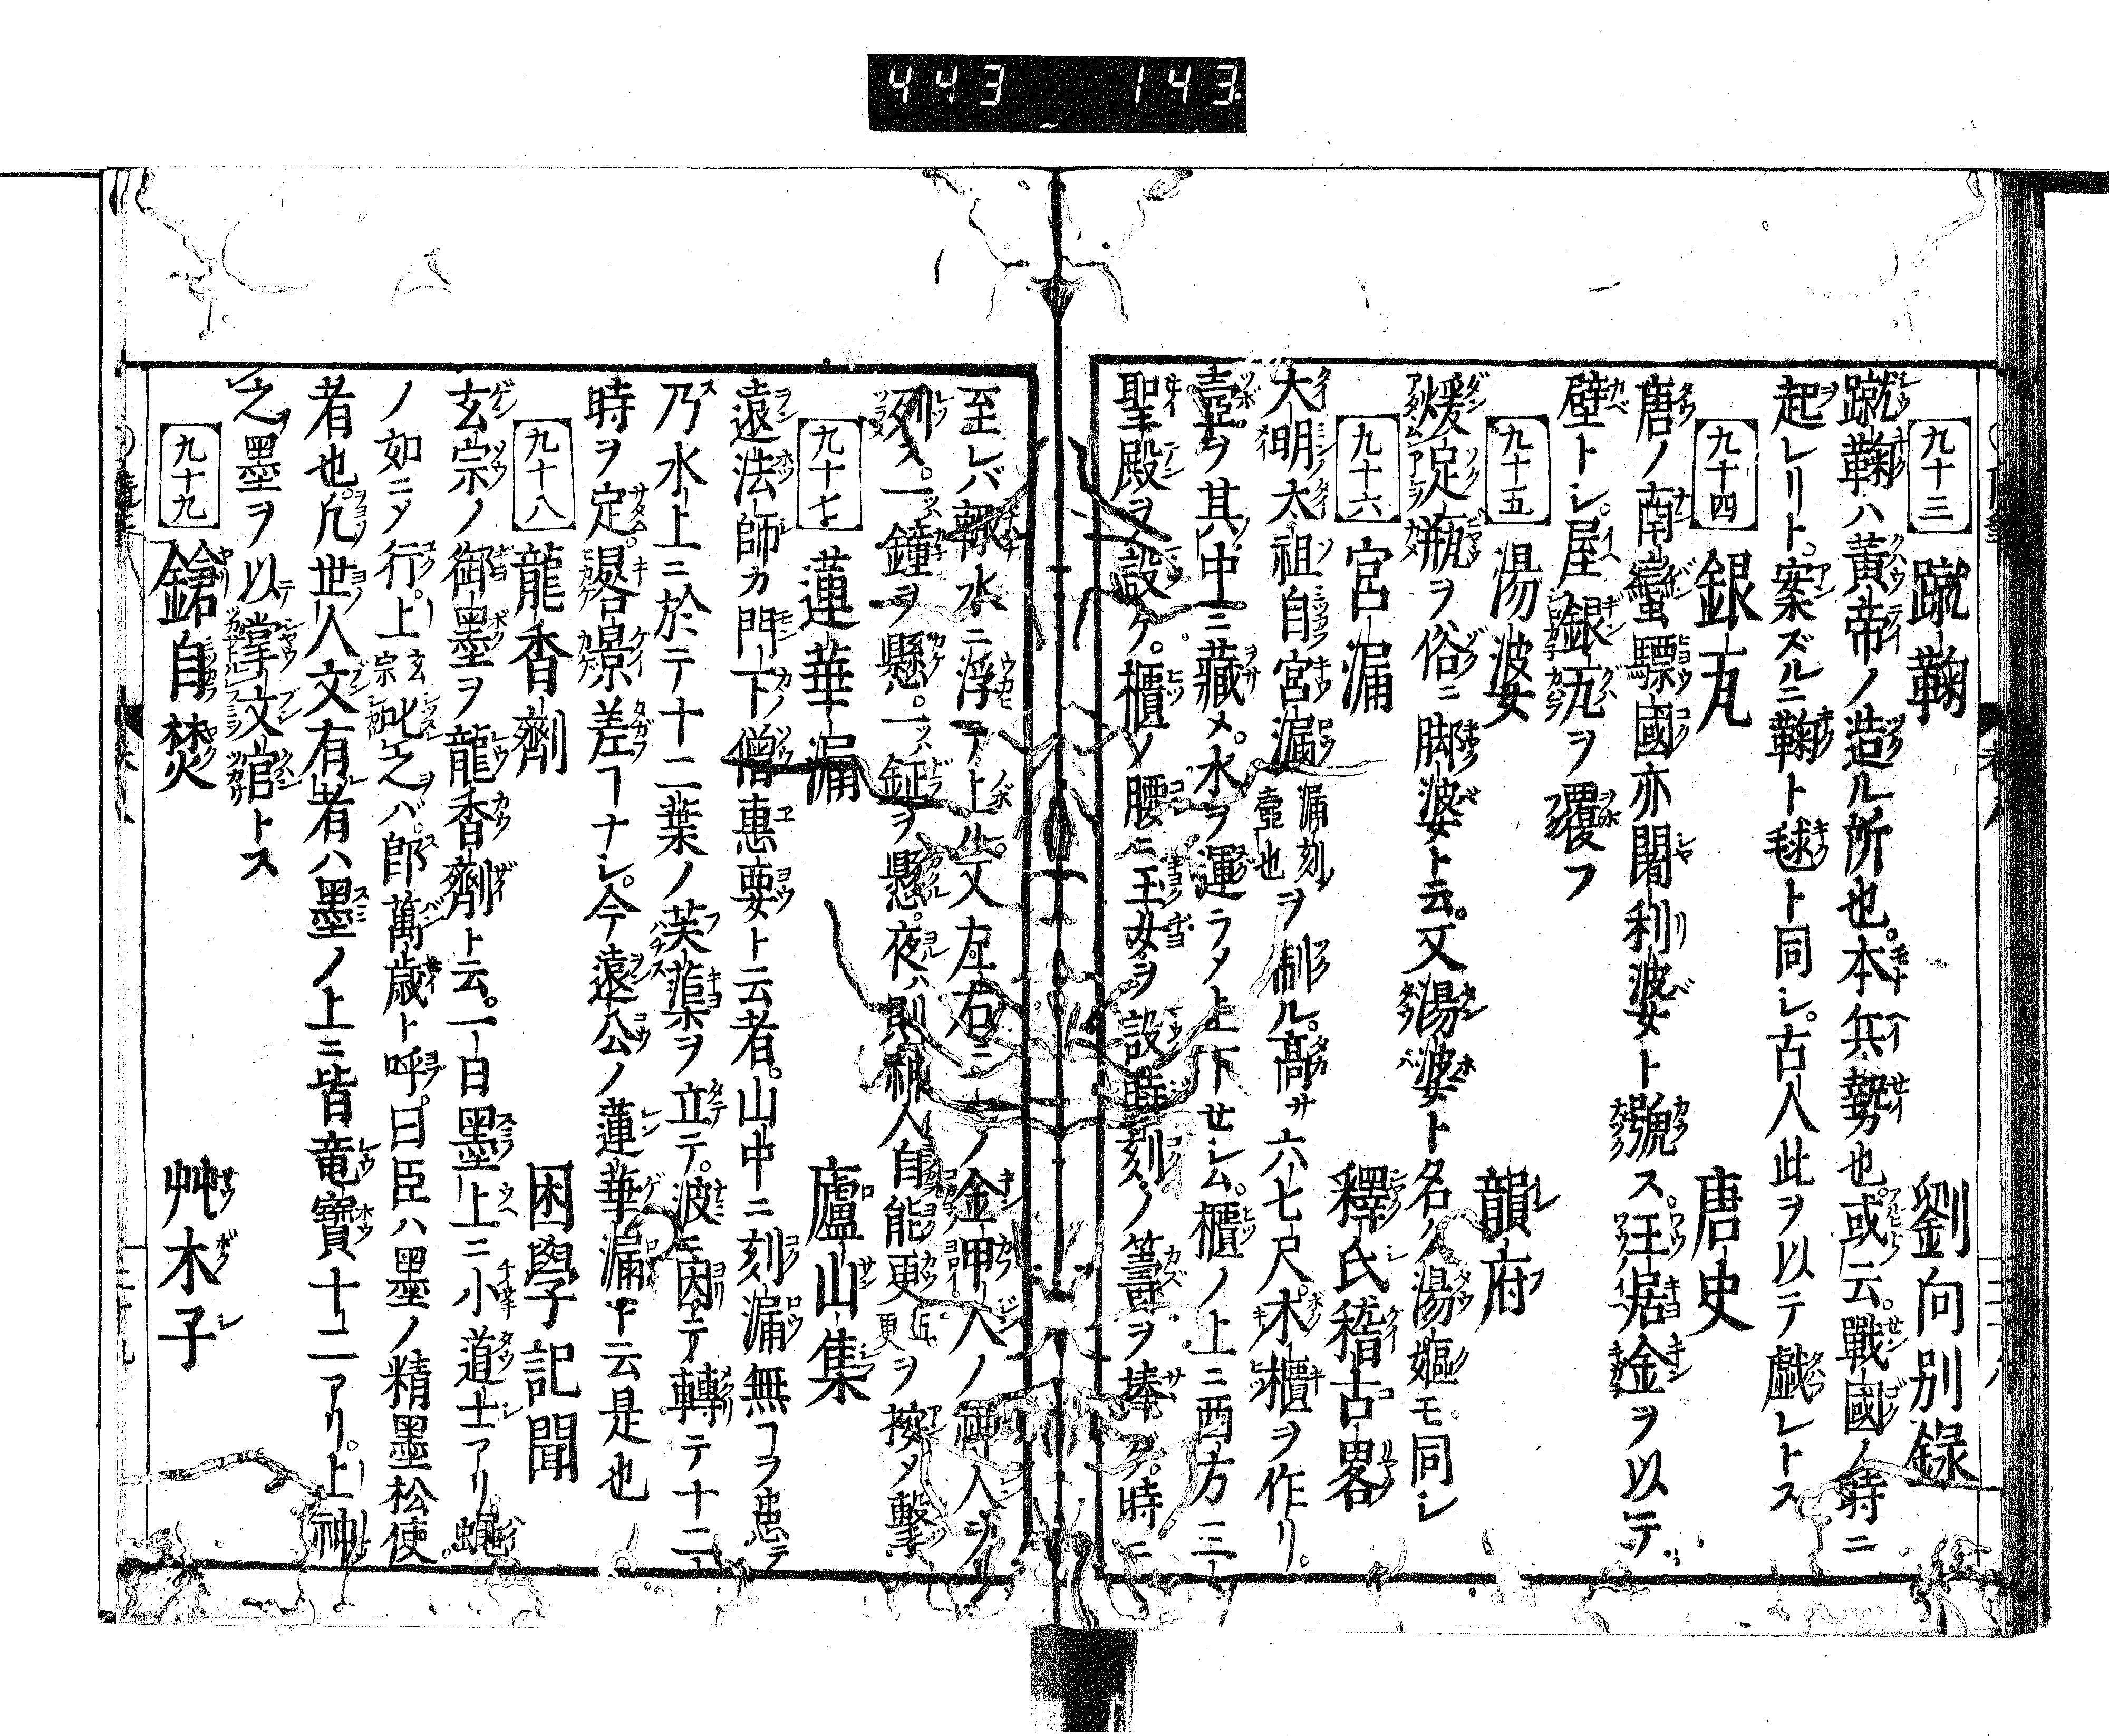 443 143
九十三 蹴鞠 劉向別録
蹴鞠ハ黄帝ノ造ル所也。本兵勢也。或云。戰國ノ時ニ
起レリト。案ズルニ鞠ト毬ト同シ。古人此ヲ以テ戯レトス
九十四 銀瓦 唐史
唐ノ南蠻驃國亦闍利波女ト號ス。王居金ヲ以テ
壁トシ。屋銀瓦ヲ覆フ
九十五 湯婆 韻府
煖足瓶ヲ俗ニ脚婆ト云。又湯婆ト名ク湯嫗モ同シ
九十六 宮漏 釋氏稽古畧
大明太祖自宮漏漏刻壺也ヲ制ル。高サ六七尺。木櫃ヲ作リ。
壺ヲ其中ニ藏メ。水ヲ運ラメ上下セシム。櫃ノ上ニ西方三
聖殿ヲ設ケ。櫃ノ腰ニ玉女ヲ設時刻ノ籌ヲ捧グ。時ニ
至レバ輙水ニ浮テ上ル。又左右ニ二ノ金甲人ノ神人
列ス。一鐘ヲ懸。一ハ鉦ヲ懸。夜ハ則神人自能更五更ヲ按メ擊
九十七 蓮華漏 廬山集
遠法師カ門下僧惠要ト云者。山中ニ刻漏無コヲ患テ
乃水上ニ於テ十二葉ノ芙蕖ヲ立テ。波ニ因テ轉テ十二
時ヲ定。晷景差フコナシ。今遠公ノ蓮華漏ト云是也
九十八 龍香劑 困學記聞
玄宗ノ御墨ヲ龍香劑ト云。一日墨上ニ小道士アリ蝿
ノ如ニメ行。上玄宗叱之バ。即萬歳ト呼。曰臣ハ墨ノ精墨松使。
者也。凡世人文有者ハ墨ノ上ニ皆竜賓十二アリ。上神
之墨ヲ以掌文官トス
九十九 鎗自焚 艸木子